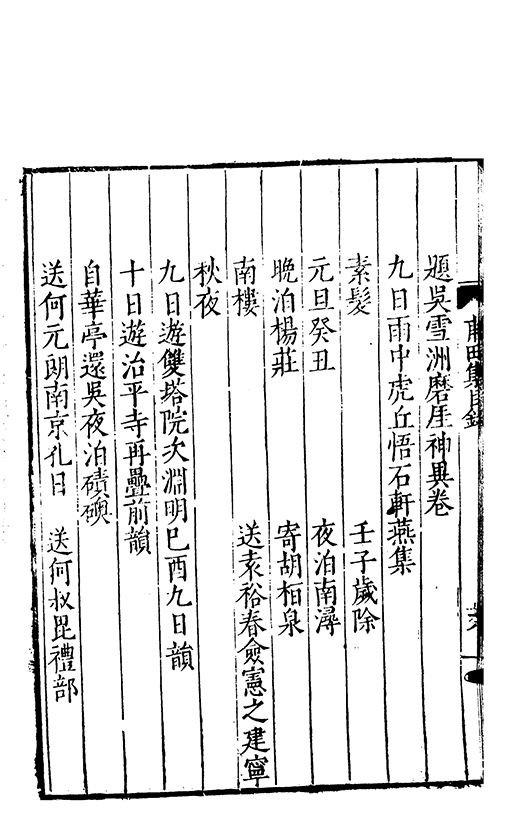 甫田集目錄
題吳雪洲磨厓神異卷
九日雨中虎丘悟石軒燕集
素髮　壬子歲除
元旦癸丑　夜泊南潯
晚泊楊莊　寄胡栢泉
南樓　送袁裕春僉憲之建寧
秋夜
九日遊雙塔院次淵明己酉九日韻
十日遊治平寺再疊前韻
自華亭還吳夜泊磧磝
送何元朗南京孔目　送何叔毘禮部